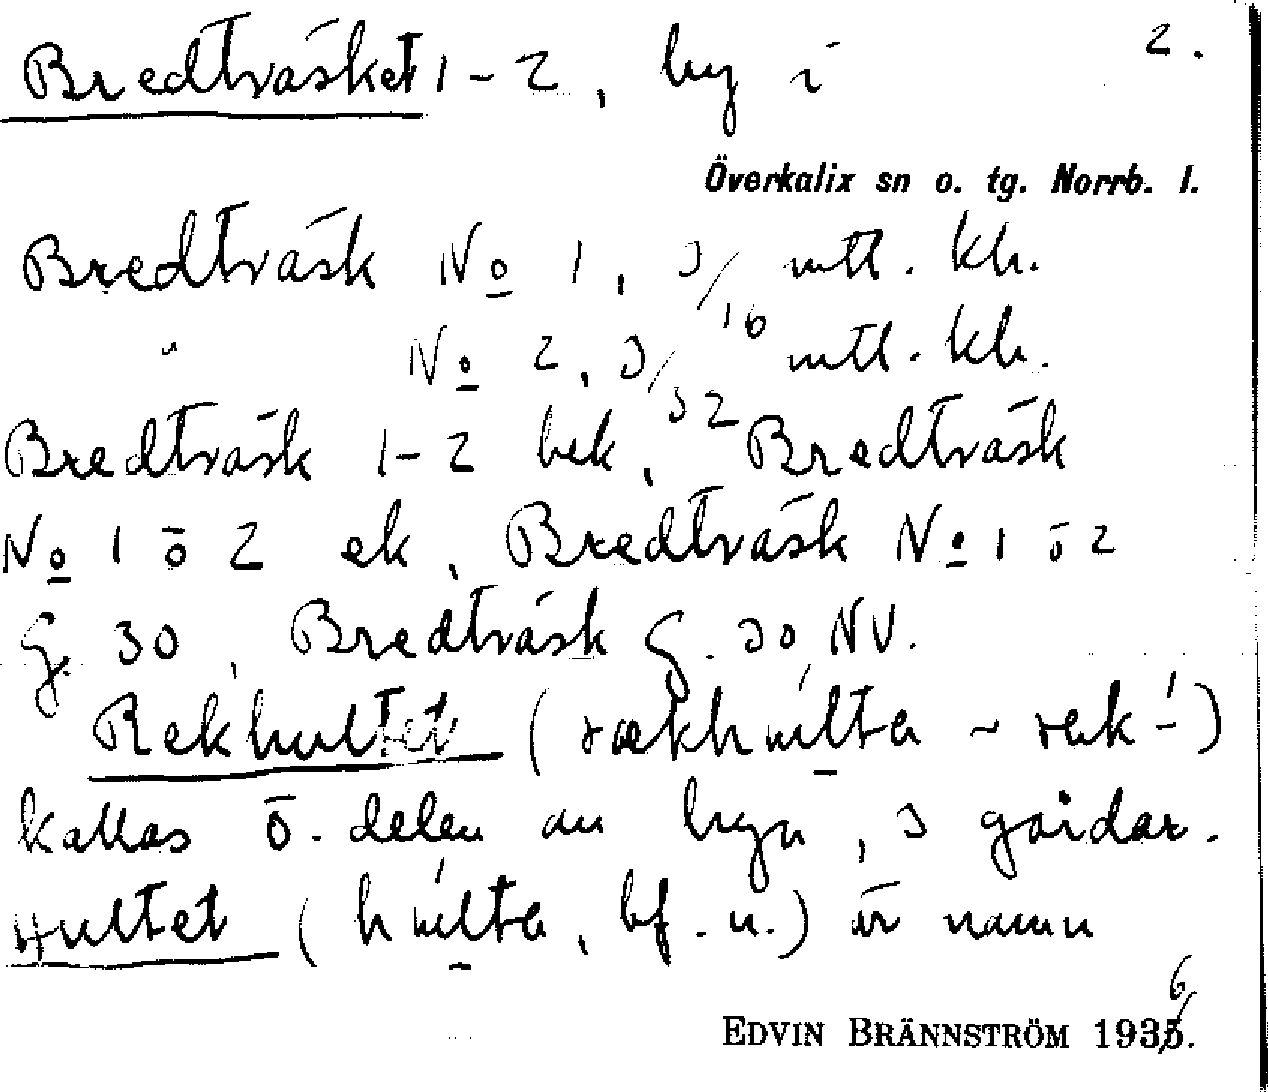 Bredträsket 1-2, by i 2.
Överkalix sn o. tg. Norrb. l.
Bredträsk No 1, 3/16 mtl. kr.
" No 2, 3/32 mtl. kr.
Bredträsk 1-2 bek, Bredträsk
No 1 ö 2 ek, Bredträsk No 1 ö 2
G. 30, Bredträsk G. 30 NV.
Rekhultet (rækhulta ~ rek-)
kallas ö. delen av byn, 3 gårdar.
Hultet (hulta, bf. n.) är namn
EDVIN BRÄNNSTRÖM 1936.